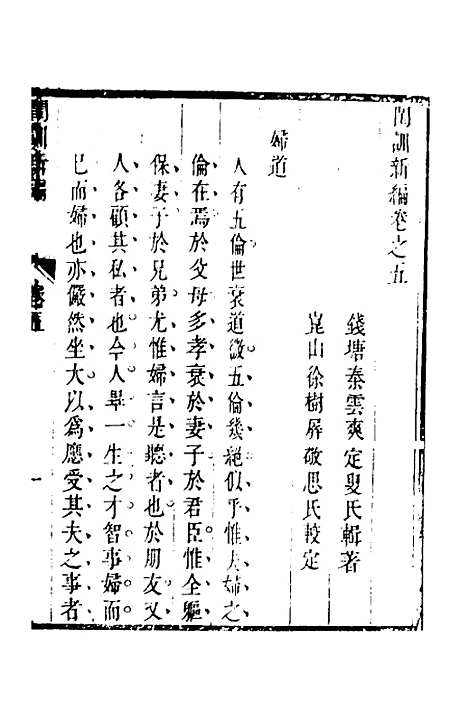 閨訓新編卷之五
錢塘秦雲爽定叟氏輯著
崑山徐樹屏敬思氏較定
婦道
人有五倫世衰道微五倫幾絕似乎惟夫婦之
倫在焉於父母多孝衰於妻子於君臣惟全軀
保妻子於兄弟尤惟婦言是聽者也於朋友又
人各顧其私者也今人舉一生之才智事婦而
已而婦也亦儼然坐大以爲應受其夫之事者
閨訓新編
卷五
一